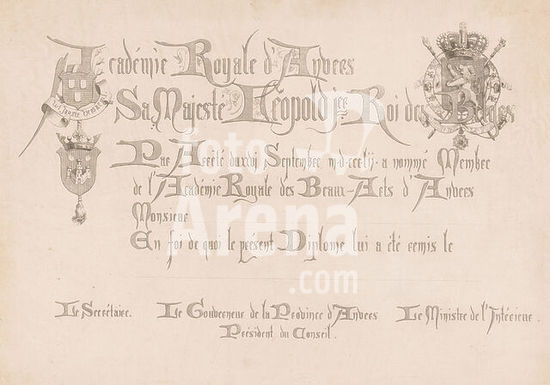 Académie Royale d'Anvers
Sa Majesté Léopold Ier Roi des Belges
Par Arrêté du XVII Septembre M.D.CCC.LII. a nommé Membre
de l'Académie Royale des Beaux-Arts d'Anvers
Monsieur
En foi de quoi le présent Diplome lui a été remis le
Le Secrétaire.
Le Gouverneur de la Province d'Anvers
Président du Conseil.
Le Ministre de l'Intérieur.
Foto
Arena
.com